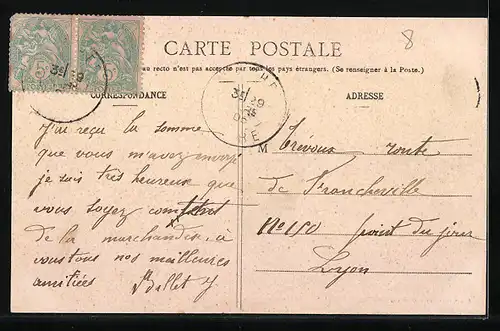 8
CARTE POSTALE
au recto n'est pas acceptée par tous les pays étrangers. (Se renseigner à la Poste.)
CORRESPONDANCE
ADRESSE
J'ai reçu la somme
que vous m'avez envoyé
je suis très heureux que
vous soyez content
de la marchandise, à
vous tous nos meilleures
amitiées
Ballet J
M Trévoux route
de Francheville
No 40 point du jour
Lyon